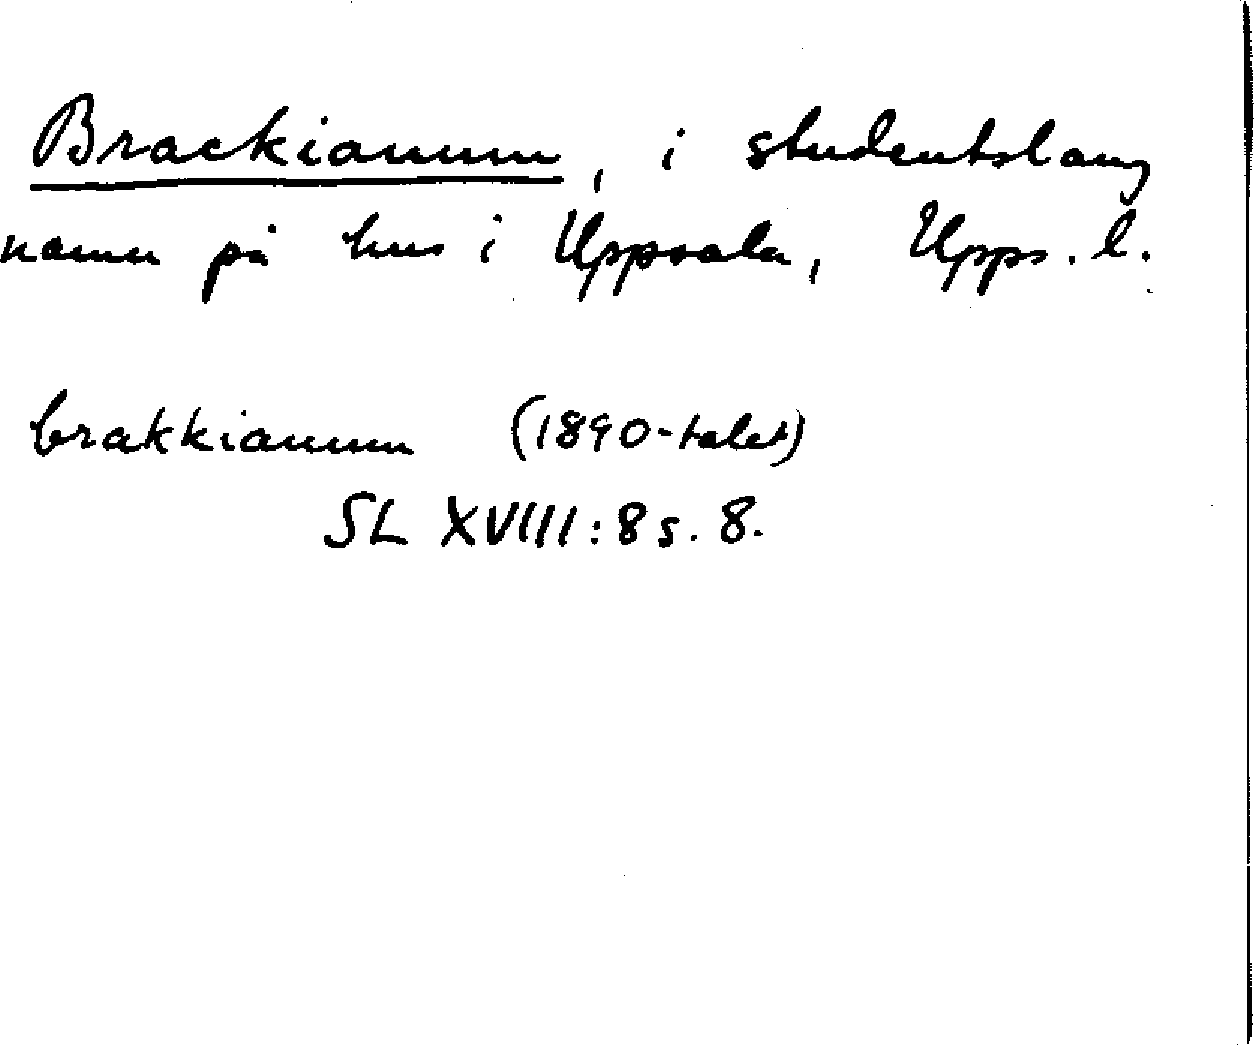 Brackianum, i studentslang
namn på hus i Uppsala, Upps. l.
brakkianum (1890-talet)
SL XVIII:8 s. 8.